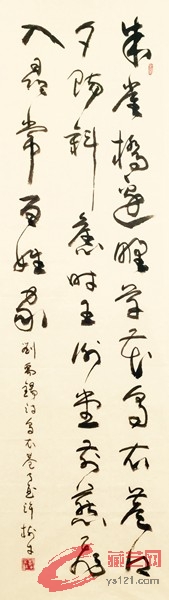 朱雀橋邊野草花烏衣巷口
夕陽斜舊時王謝堂前燕飛
入尋常百姓家
劉禹錫詩烏衣巷
ys121.com